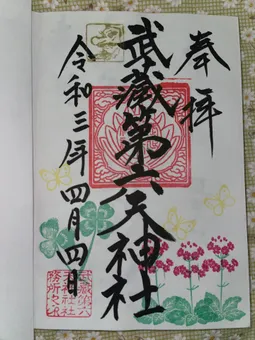 奉拝
武蔵第六天神社
令和三年四月四日
武蔵第六
天神社
務所之印